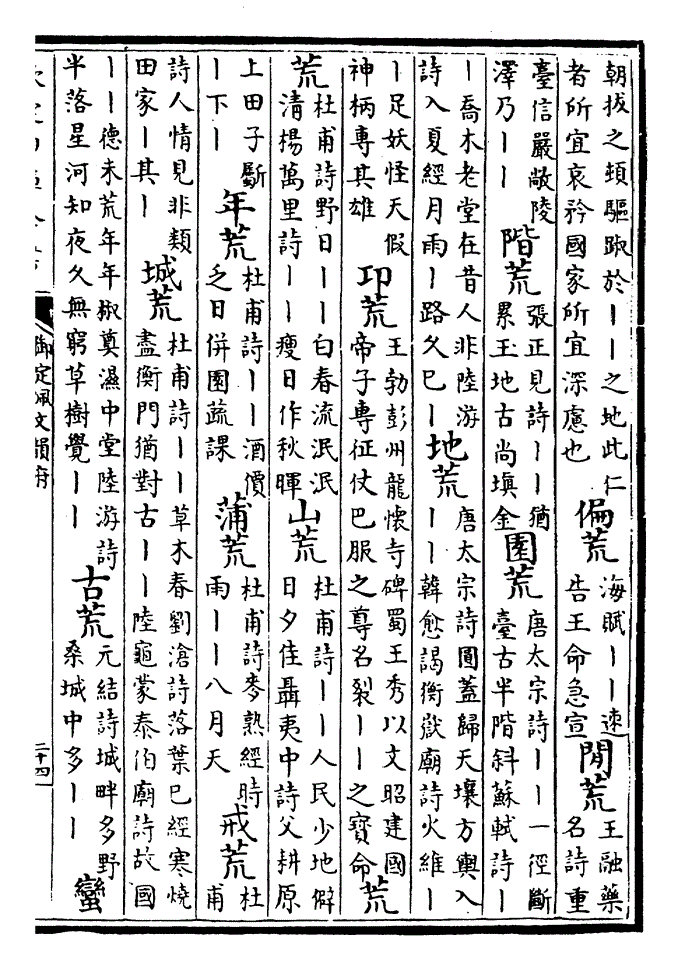 朝拔之頭驅踧於丨丨之地此仁
者所宜哀矜國家所宜深慮也
偏荒
海賦丨丨速
告王命急宣
閒荒
王融藥
名詩重
臺信嚴敞陵
澤乃丨丨
階荒
張正見詩丨丨猶
累玉地古尚填金
園荒
唐太宗詩丨丨一徑斷
臺古半階斜蘇軾詩丨
丨喬木老堂在昔人非陸游
詩入夏經月雨丨路久巳丨
地荒
唐太宗詩圓蓋歸天壤方輿入
丨丨韓愈謁衡嶽廟詩火維丨
丨足妖怪天假
神柄專其雄
卬荒
王勃彭州龍懷寺碑蜀王秀以文昭建國
帝子專征仗巴服之尊名裂丨丨之寶命
荒
荒
杜甫詩野日丨丨白春流泯泯
清楊萬里詩丨丨瘦日作秋暉
山荒
杜甫詩丨丨人民少地僻
日夕佳聶夷中詩父耕原
上田子斸
丨下丨
年荒
杜甫詩丨丨酒價
乏日併園蔬課
蒲荒
杜甫詩麥熟經時
雨丨丨八月天
戒荒
杜
甫
詩人情見非類
田家丨其丨
城荒
杜甫詩丨丨草木春劉滄詩落葉巳經寒燒
盡衡門猶對古丨丨陸龜蒙泰伯廟詩故國
丨丨德未荒年年椒奠濕中堂陸游詩
半落星河知夜久無窮草樹覺丨丨
古荒
元結詩城畔多野
桑城中多丨丨
蠻
御定佩文韻府
二十四